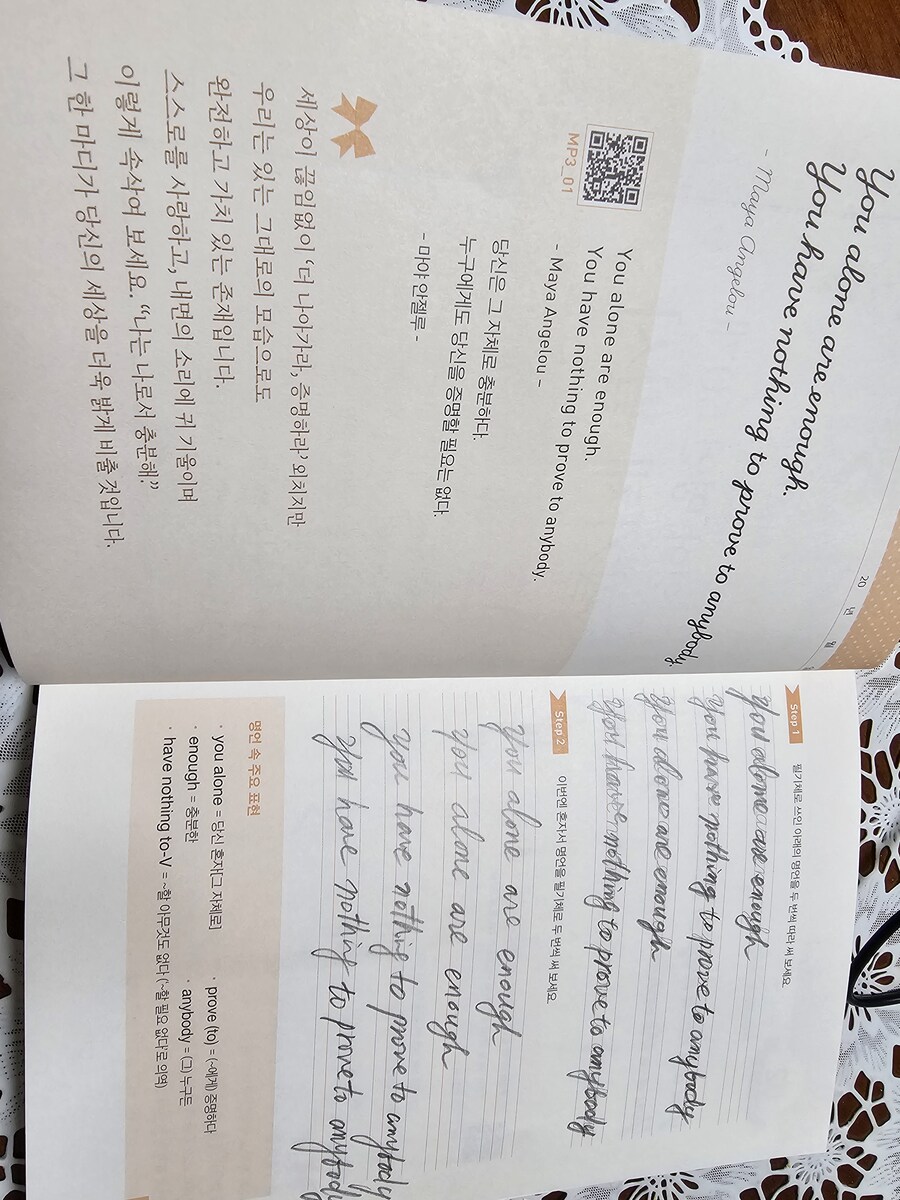 You alone are enough.
You have nothing to prove to anybody.
- Maya Angelou -
MP3_01
You alone are enough.
You have nothing to prove to anybody.
- Maya Angelou -
당신은 그 자체로 충분하다.
누구에게도 당신을 증명할 필요는 없다.
- 마야 안젤루 -
세상이 끊임없이 ‘더 나아가라, 증명하라’ 외치지만
우리는 있는 그대로의 모습으로도
완전하고 가치 있는 존재입니다.
스스로를 사랑하고, 내면의 소리에 귀 기울이며
이렇게 속삭여 보세요. “나는 나로서 충분해.”
그 한 마디가 당신의 세상을 더욱 밝게 비출 것입니다.
20 년 월
Step 1 필기체로 쓰인 아래의 명언을 두 번씩 따라 써 보세요
You alone are enough
You have nothing to prove to anybody
You alone are enough
You have nothing to prove to anybody
Step 2 이번엔 혼자서 명언을 필기체로 두 번씩 써 보세요
You alone are enough
You alone are enough
You have nothing to prove to anybody
You have nothing to prove to anybody
명언 속 주요 표현
· you alone = 당신 혼자[그 자체로]
· enough = 충분한
· have nothing to-V = ~할 아무것도 없다 (‘~할 필요 없다’로 의역)
· prove (to) = (~에게) 증명하다
· anybody = (그) 누구든